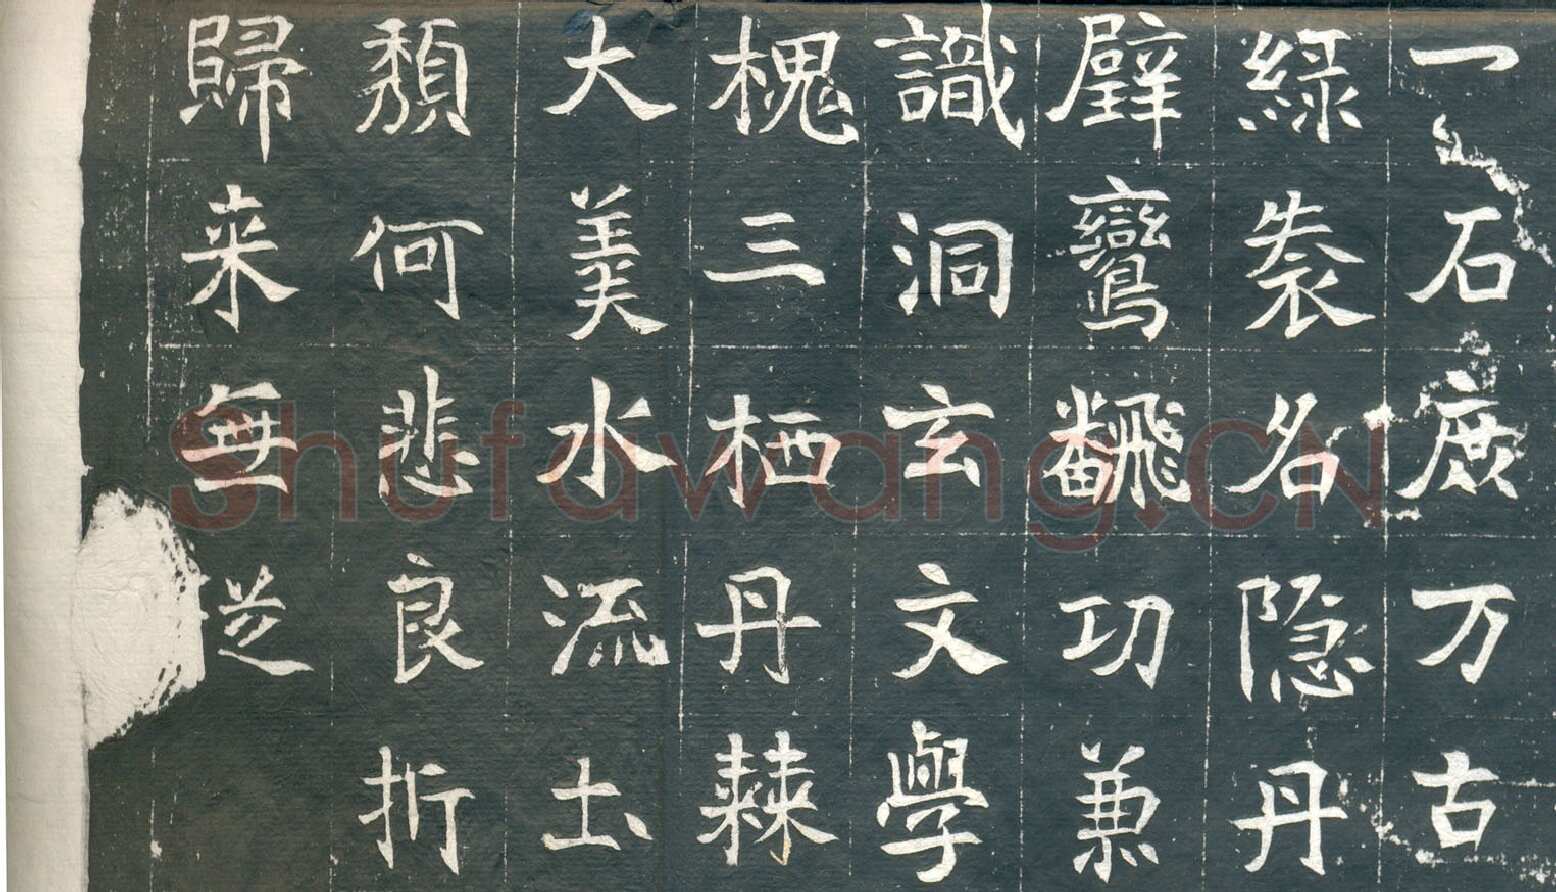 一石庶万古
緑袠名隐丹
壁鸞飜功兼
識洞玄文學
槐三栖丹棘
大美水流土
頹何悲良折
歸来無
Shufawang.CN